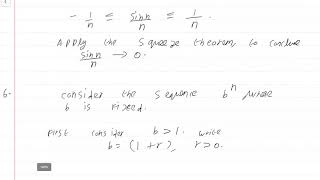 - 1/n ≤ sin n/n ≤ 1/n.
Apply the Squeeze theorem to conclude
sin n/n → 0.
6. consider the sequence bⁿ where
b is fixed.
First consider b > 1. write
b = (1 + r), r > 0.